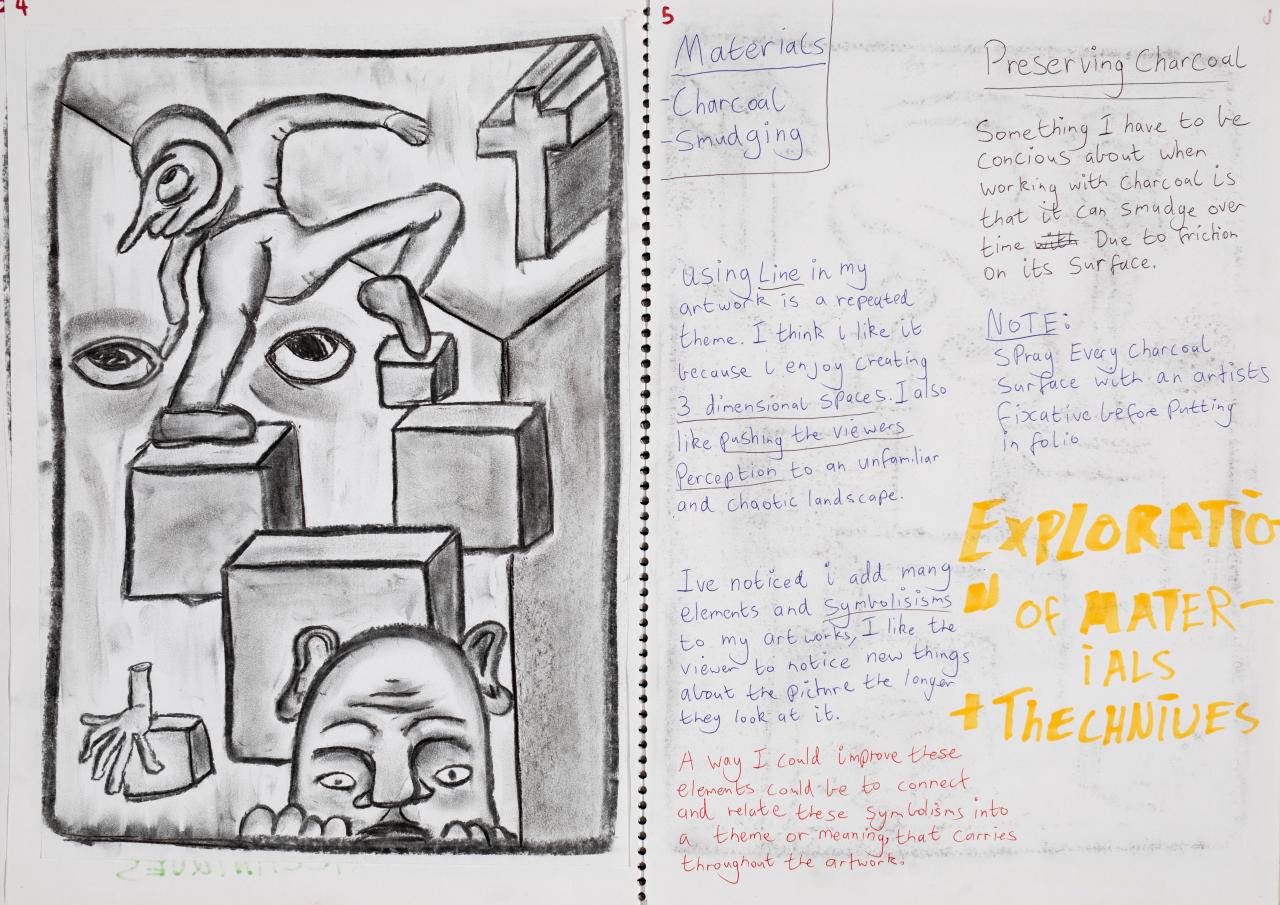 4
5
Materials
-Charcoal
-Smudging
using Line in my
artwork is a repeated
theme. I think i like it
because i enjoy creating
3 dimensional spaces. I also
like pushing the viewers
Perception to an unfamiliar
and chaotic landscape.
Ive noticed i add many
elements and symbolisisms
to my artworks, I like the
viewer to notice new things
about the picture the longer
they look at it.
A way I could improve these
elements could be to connect
and relate these symbolisms into
a theme or meaning, that carries
throughout the artwork.
Preserving Charcoal
Something I have to be
concious about when
working with charcoal is
that it can smudge over
time with Due to friction
on its surface.
NOTE:
SPray Every Charcoal
Surface with an artists
fixative before Putting
in folio
EXPLORATIO
N OF MATER-
iALS
+ THECHNIUES